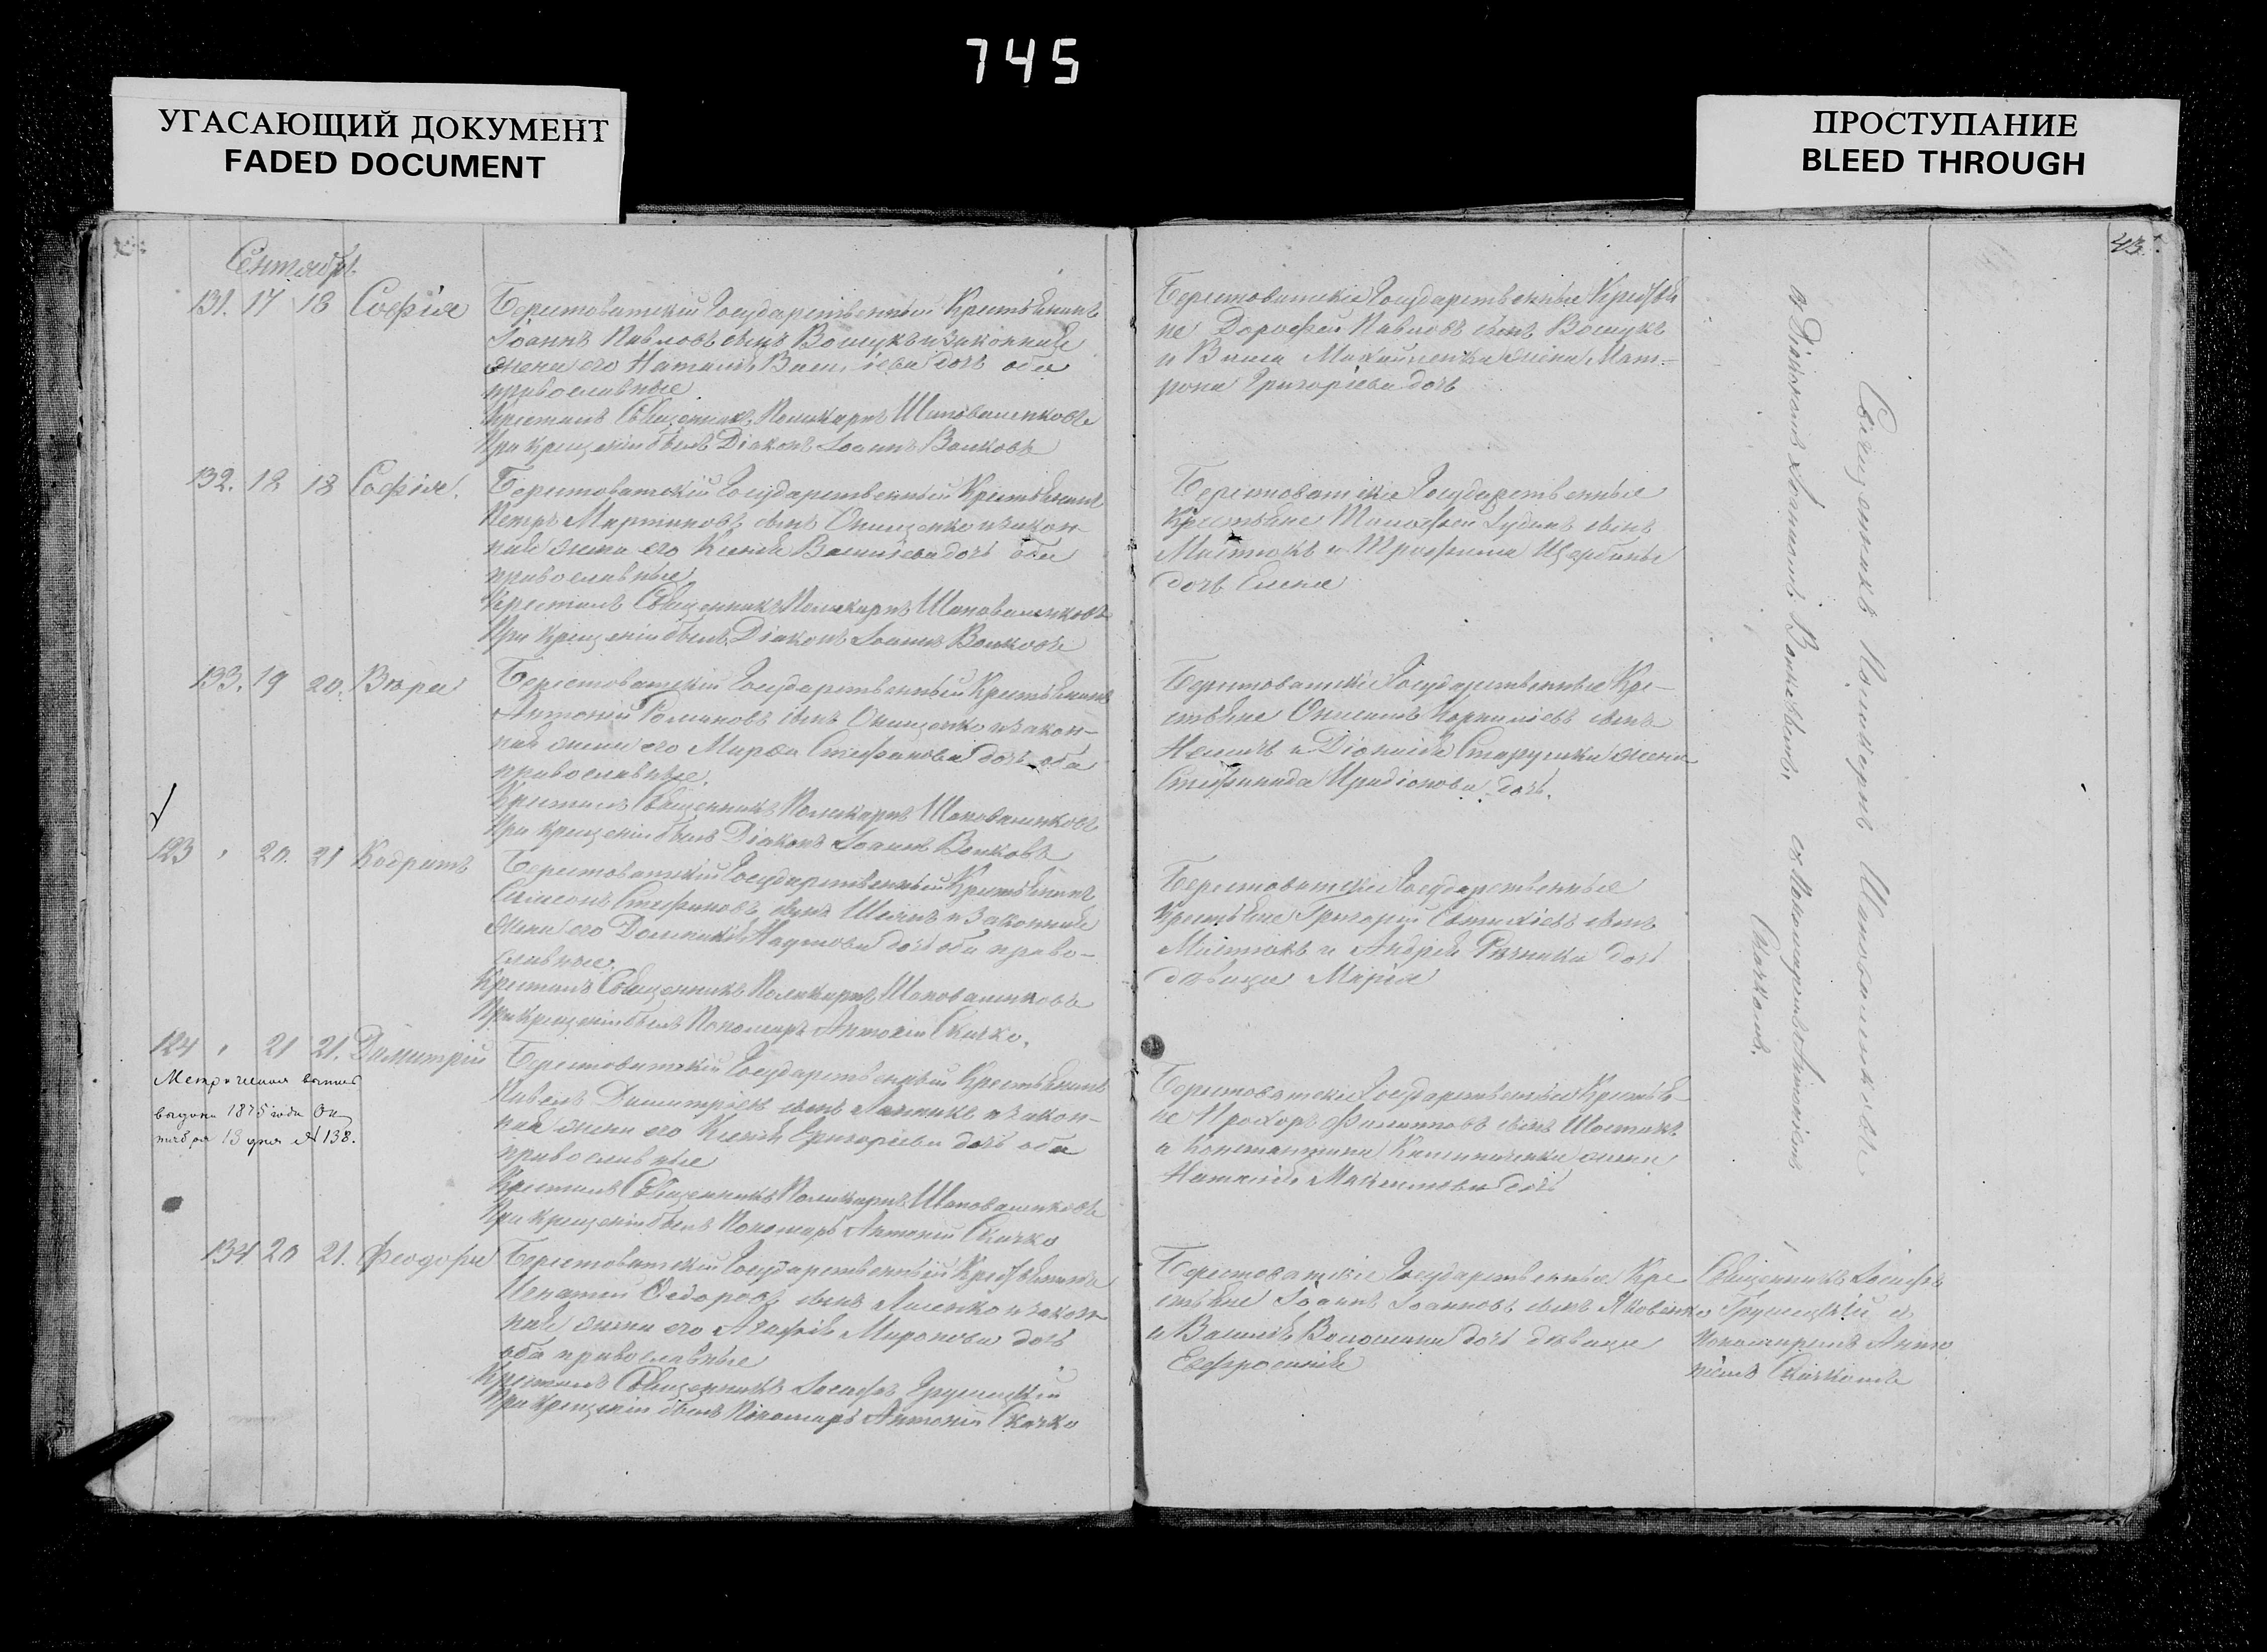 745
УГАСАЮЩИЙ ДОКУМЕНТ
FADED DOCUMENT
ПРОСТУПАНИЕ
BLEED THROUGH
43.
Сентябрь
131. 17 18 Софія
Берестоватскій Государственный Крестьянинъ
Іоаннъ Павловъ сынъ Вощукъ и законная
жена его Наталія Василіева дочь оба
православные
Крестилъ Священникъ Поликарпъ Шаповаленковъ
При крещеніи былъ Діаконъ Іоаннъ Волковъ
132. 18 18 Софія.
Берестоватскій Государственный Крестьянинъ
Петръ Мартиновъ сынъ Онищенко и закон-
ная жена его Ксенія Василіева дочь оба
православные
Крестилъ Священникъ Поликарпъ Шаповаленковъ
При крещеніи былъ Діаконъ Іоаннъ Волковъ
133. 19 20. Вѣра
Берестоватскій Государственный Крестьянинъ
Антоній Романовъ сынъ Онищенко и закон-
ная жена его Марѳа Стефанова дочь оба
православные.
Крестилъ Священникъ Поликарпъ Шаповаленковъ
При крещеніи былъ Діаконъ Іоаннъ Волковъ
123 " 20. 21 Кодратъ
Берестоватскій Государственный Крестьянинъ
Симеонъ Стефановъ сынъ и законная
жена его Домникія Наумова дочь оба право-
славные.
Крестилъ Священникъ Поликарпъ Шаповаленковъ
При крещеніи былъ Пономарь Антоній Скачко.
124 " 21 21. Димитрій
Метрическая выпись
выдана 1875 года Ок
тября 13 дня № 138.
Берестоватскій Государственный Крестьянинъ
Павелъ Димитріевъ сынъ и закон-
ная жена его Ксенія Григоріева дочь оба
православные
Крестилъ Священникъ Поликарпъ Шаповаленковъ
При крещеніи былъ Пономарь Антоній Скачко
134 20 21. Феодора
Берестоватскій Государственный Крестьянинъ
Игнатій Федоровъ сынъ Лисенко и закон-
ная жена его Агафія Миронова дочь
оба православные
Крестилъ Священникъ Іосифъ Грушецкій
При крещеніи былъ Пономарь Антоній Скачко
Берестоватскіе Государственные Крестья
не Дорофей Павловъ сынъ Вощукъ
и Михайленка жена Мат-
рона Григоріева дочь
Берестоватскіе Государственные
Крестьяне Тимофей Іудинъ сынъ
и Трофима Щербины
дочь Елена
Берестоватскіе Государственные Кре-
стьяне Онисимъ Корниліевъ сынъ
и Діонисія Старушка жена
Стефанида Иридіонова дочь.
Берестоватскіе Государственные
Крестьяне Григорій сынъ
и Андрея дочь
дѣвица Марія
Берестоватскіе Государственные Крестья-
не Прохоръ Филипповъ сынъ Шостакъ
и Константина Калиниченка жена
Наталія Максимова дочь
Берестоватскіе Государственные Кре
стьяне Іоаннъ Іоанновъ сынъ Яковенко
и Василія Волошина дочь дѣвица
Евфросинія
Священникъ Поликарпъ Шаповаленковъ
съ Діакономъ Іоанномъ Волковымъ. съ Пономаремъ Антоніемъ
Скачкомъ.
Священникъ Іосифъ
Грушецкій съ
пономаремъ Анто
ніемъ Скачкомъ